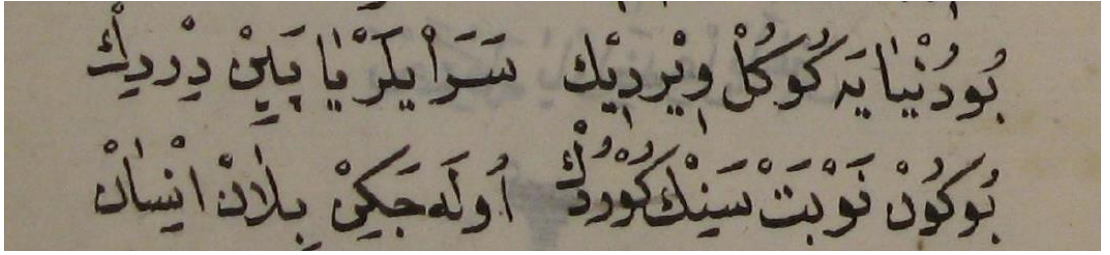 بُو دُنْيَايَه كُوكُلْ وِيْردِيْك سَرَاْيلَرْ يَاپَيِنْ دِرْدِكْ
بُوكُونْ نَوْبَتْ سَنِكْ كُوْرْدُكْ اُولَه جَكِنْ بِلَانْ اِنْسَانْ